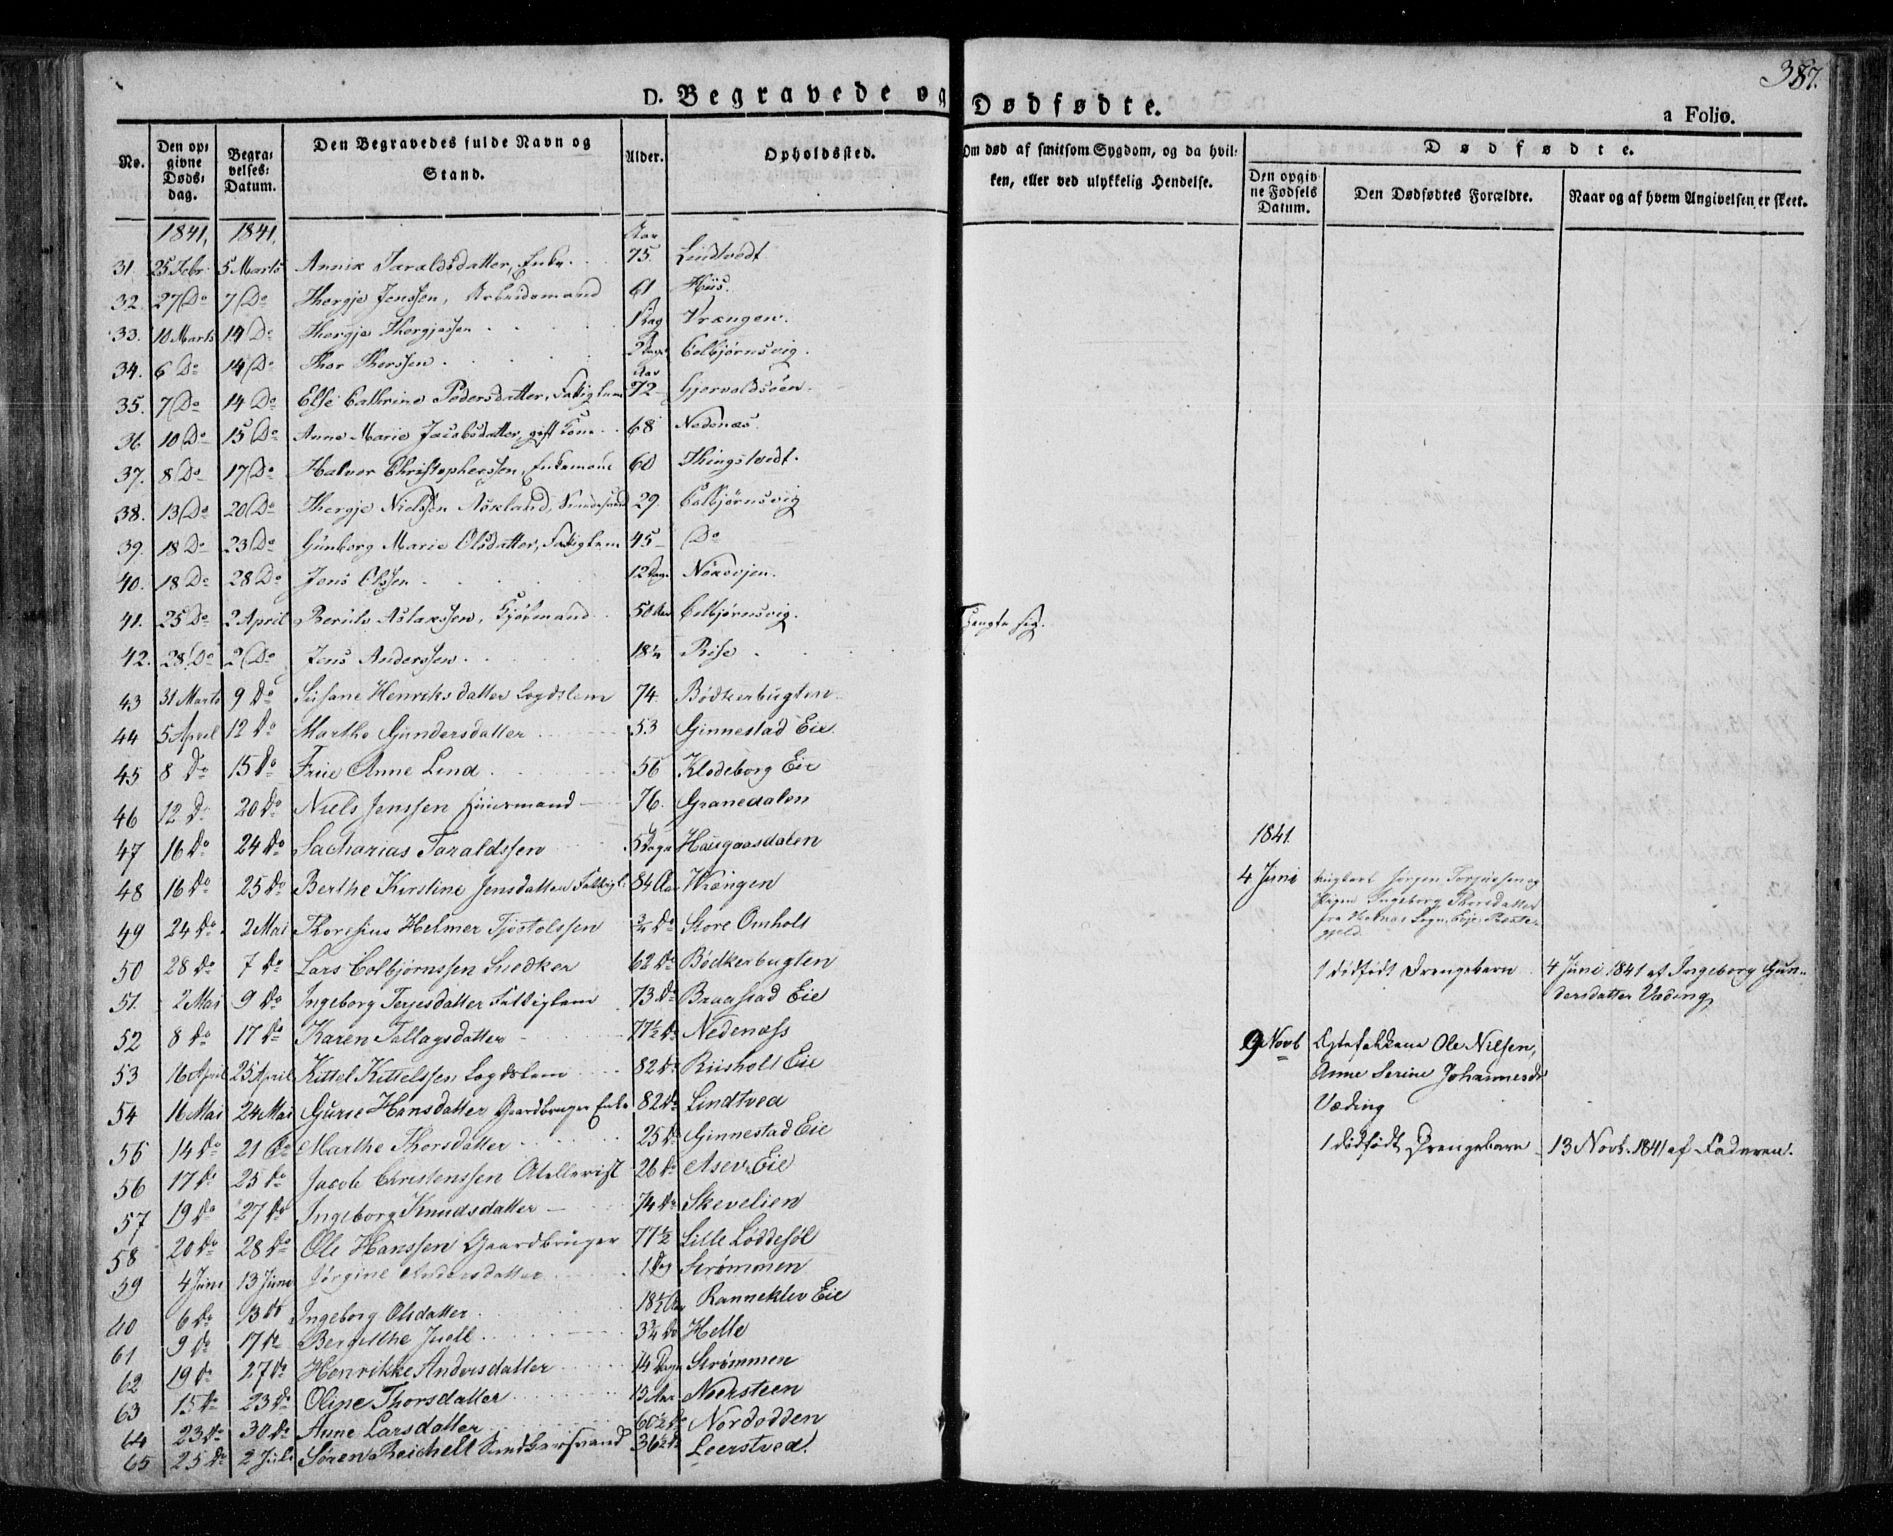 387.
D. Begravede og Dødfødte.
a Folio.
No.
Den op-
givne
Døds-
dag.
Begra-
velses-
Datum.
Den Begravedes fulde Navn og
Stand.
Alder.
Opholdssted.
Om død af smitsom Sygdom, og da hvil-
ken, eller ved ulykkelig Hendelse.
Dødfødte.
Den opgiv-
ne Fødsels
Datum.
Den Dødfødtes Forældre.
Naar og af hvem Angivelsen er skeet.
1841, 1841, Aar
31. 25 Febr. 5 Marts Annie Taraldsdatter, Enke. 75. Lindtvedt
32. 27 Do 7 Do Thergje Jenssen, Arbeidsmand 61 Hiis.
33. 10 Marts 14 Do Thergje Thergjessen 1 Dag Vrængen.
34. 6 Do 14 Do Thor Thorssen. 3 Dage Colbjørnsvig.
Aar
35. 7 Do 14 Do Else Cathrine Pedersdatter, Fattiglem 72 Gjervoldsøen
36 10 Do 15 Do Anne Marie Jacobsdatter, gift Kone 68 Nedenæs.
37. 8 Do 17 Do Halvor Christophersen, Enkemand 60 Thingstvedt.
38. 13 Do 20 Do Thergje Nielssen Askland, 29. Colbjørnsvig
39. 18 Do 23 Do Gunborg Marie Olsdatter, Fattiglem 45 Do
40. 18 Do 28 Do Jens Olssen 12 Dage
41. 25 Do 2 April Aslakssen, 50 Aar Colbjørnsvig. Hængte sig.
42. 28 Do 2 Do Jens Anderssen. 18 Rise
43 31 Marts 9 Do Susane Henriksdatter Legdslem 74. Bødkerbugten
44 5 April 12 Do Marthe Gundersdatter 53 Ginnestad Eie
45 8 Do 15 Do Frue Anne Lind 56 Klodeborg Eie
46 12 Do 20 Do Niels Jenssen Huusmand 76. Granedalen
47 16 Do 24 Do Sacharias Taraldssen 5 Dage Haugaasdalen
48 16 Do 25 Do Berthe Kirstine Jensdatter Fattigl. 84 Aar Vrængen
49 24 Do 2 Mai Thoresius Helmer Tjostolssen Do Store Omholt
50 28 Do 7 Do Lars Colbjørnssen Snedker 62 Do Bødkerbugten
51. 2 Mai 9 Do Ingeborg Terjesdatter Fattiglem 73 Do Braastad Eie
52 8 Do 17 Do Karen Tallagsdatter 77½ Do Nedenæss
53 16 April 25 April Kittel Kittelssen Legdslem 82 Do Riisholt Eie
54 16 Mai 24 Mai Gurie Hansdatter Gaardbruger Enke 82 Do Lindtved
55 14 Do 21 Do Marthe Thorsdatter 25 Do Ginnestad Eie
56 17 Do 25 Do Jacob Christenssen 26 Do Asev Eie
57 19 Do 27 Do Ingeborg Knudsdatter 74 Do Skevelien
58 20 Do 28 Do Ole Hanssen Gaardbruger 77½ Lille Løddesøl
59 4 Juni 13 Juni Jørgine Andersdatter 1 Dag Strømmen
60 6 Do 13 Do Ingeborg Olsdatter 18½ Aar Ranneklev Eie
61 9 Do 17 Do Bergithe Juell 3¾ Do Helle
62 19 Do 27 Do Henrikke Andersdatter 14 Dage Strømmen
63 15 Do 23 Do Oline Thorsdatter 13 Aar Neersteen
64 23 Do 30 Do Anne Larsdatter 60½ Do Nordodden
65 25 Do 2 Juli Søren Reichelt 36½ Do Leerstved.
1841
4 Juni Ungkarl Jørgen Terjussen og
Pigen Ingeborg Thorsdatter
fra Sogn, Præste-
gjeld.
1 dødfødt Drengebarn 4 Juni 1841 af Ingeborg Gun-
dersdatter Væding
9 Novb Egtefolkene Ole Nilsen,
Anne Serine Johannesdr
Væding
1 dødfødt Drengebarn 13 Novb. 1841 af Faderen.